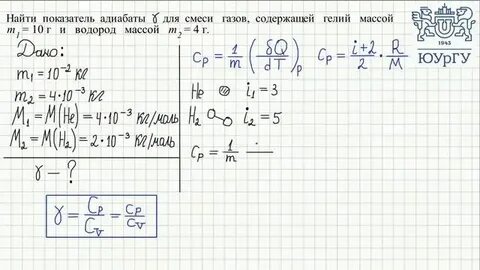 Найти показатель адиабаты γ для смеси газов, содержащей гелий массой
m₁ = 10 г и водород массой m₂ = 4 г.
1943
ЮУрГУ
Дано:
m₁ = 10⁻² кг
m₂ = 4·10⁻³ кг
M₁ = M(He) = 4·10⁻³ кг/моль
M₂ = M(H₂) = 2·10⁻³ кг/моль
γ – ?
γ = Cp/Cv = cp/cv
cp = 1/m (δQ/dT)p cp = i+2/2 · R/M
He i₁ = 3
H₂ i₂ = 5
cp = 1/m